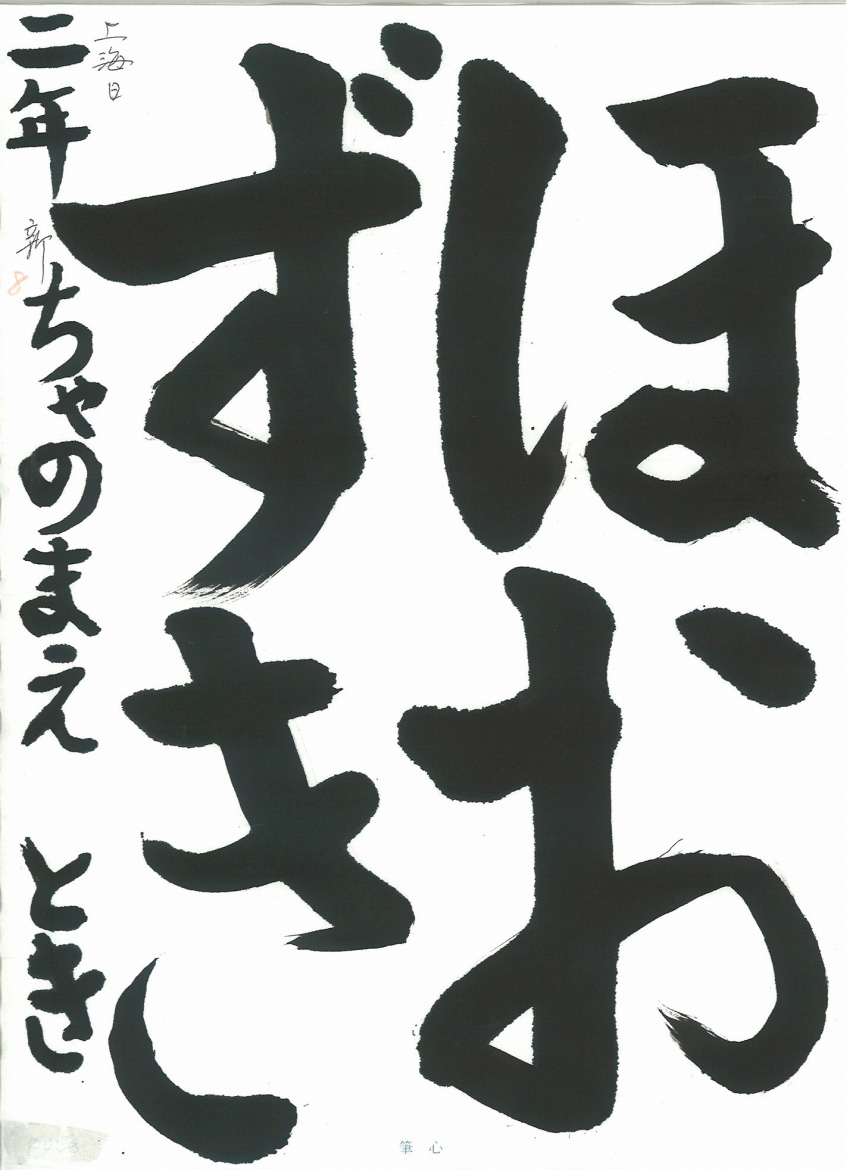 ほお
ずき
二年 ちゃのまえ とき
上海日
新
8
筆 心